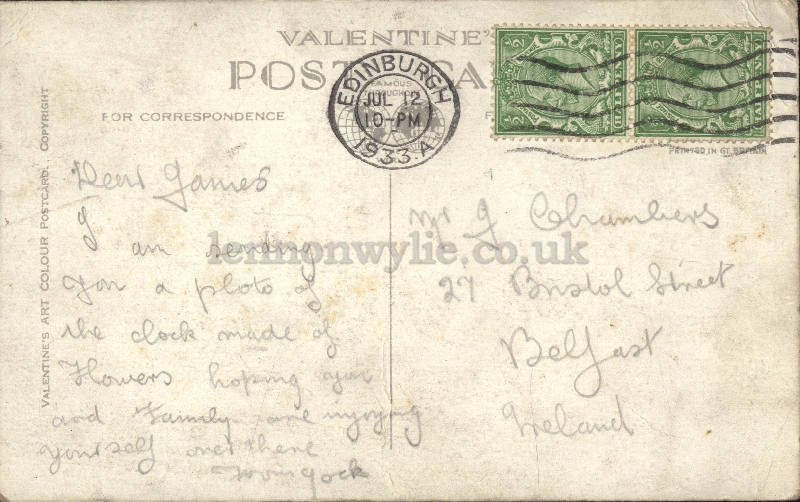 VALENTINE'
POSTCA
FOR CORRESPONDENCE
F
EDINBURGH
JUL 12
10-PM
1933.A
FAMOUS
THROUGHOUT
PRINTED IN GT. BRITAIN
VALENTINE'S ART COLOUR POSTCARD. COPYRIGHT
lennonwylie.co.uk
Dear James
I
am sending
you a photo of
the clock made of
Flowers hoping you
and Family are injoying
yourself over there
Mr J Chambers
27 Bristol Street
Belfast
Ireland